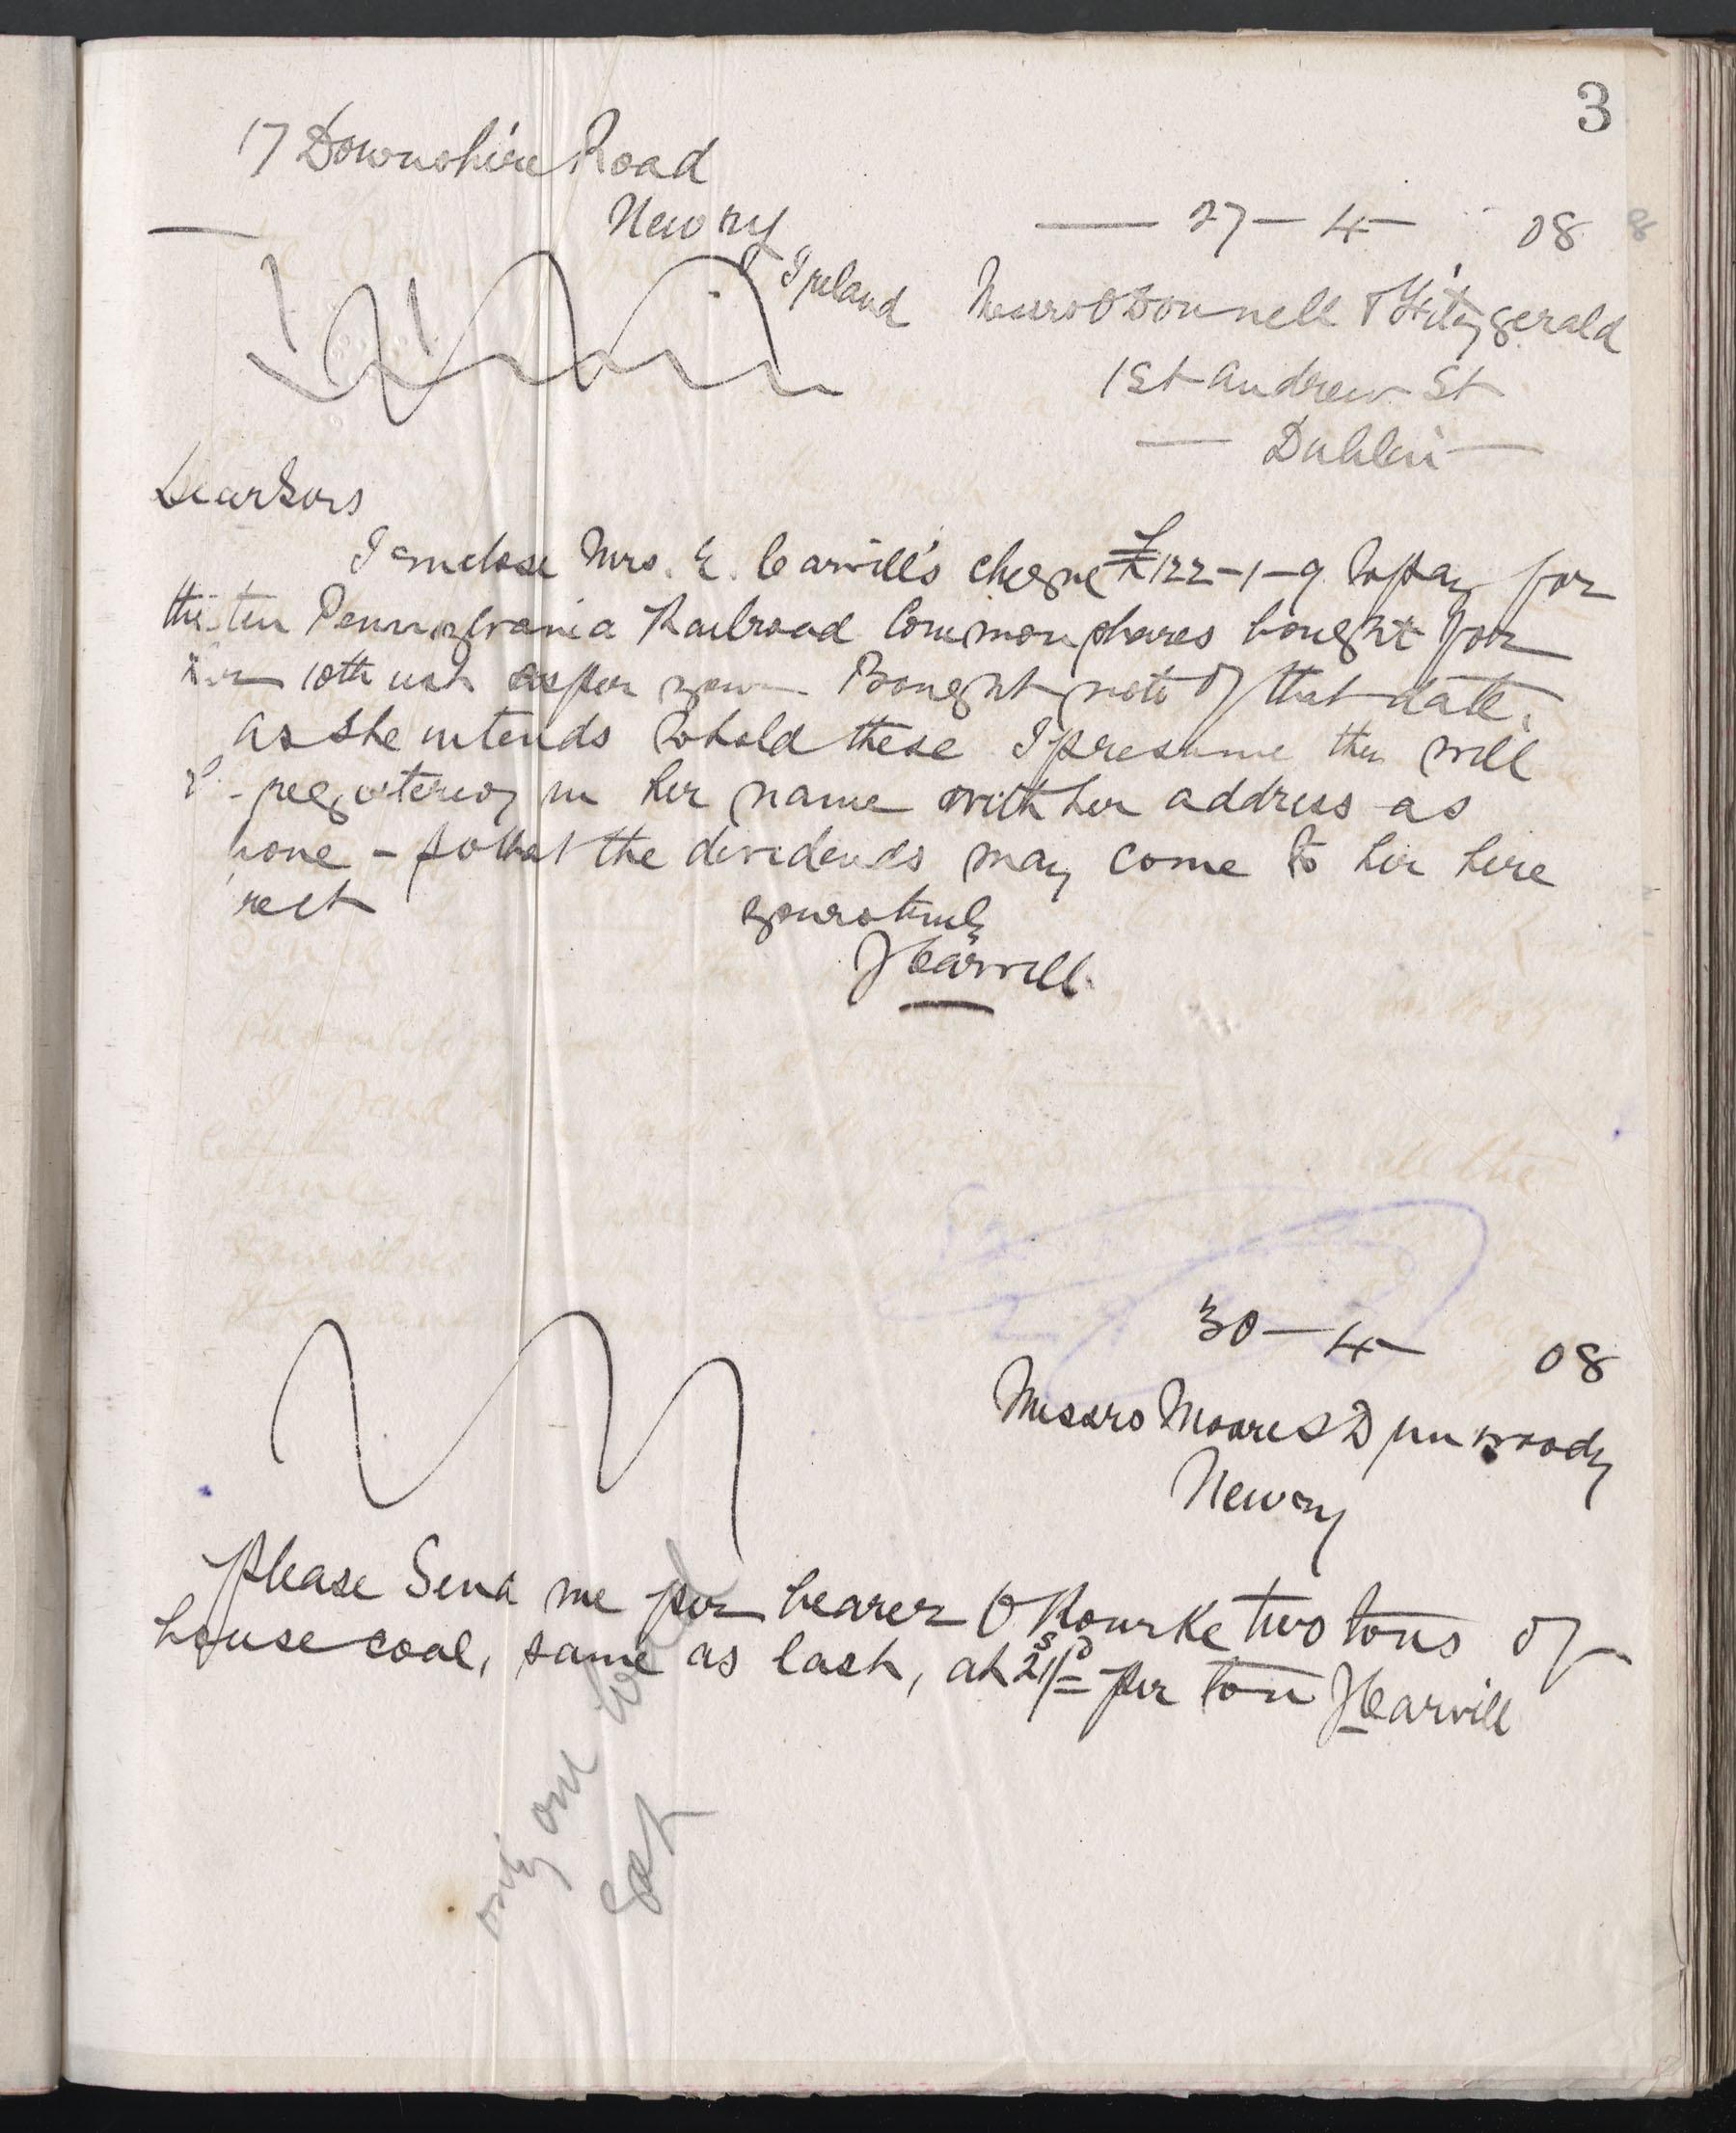 3
17 Downshire Road
Newry
Ireland
27-4- 08
Messrs O'Donnell & Fitzgerald
1 St Andrew St
Dublin
Dear Sirs
I enclose Mrs. E. Carvill's cheque £122-1-9 to pay for
the ten Pennsylvania Railroad Common shares bought for
her 10th as per your Bought note of that date.
as she intends to hold these I presume they will
be registered in her name with her address as
- so that the dividends may come to her here
yours truly
J Carvill
30-4- 08
Messrs Moore & Dunwoody
Newry
Please Send me per bearer O Rourke two tons of
house coal, same as last, at 21s/-D per ton J Carvill
only one load